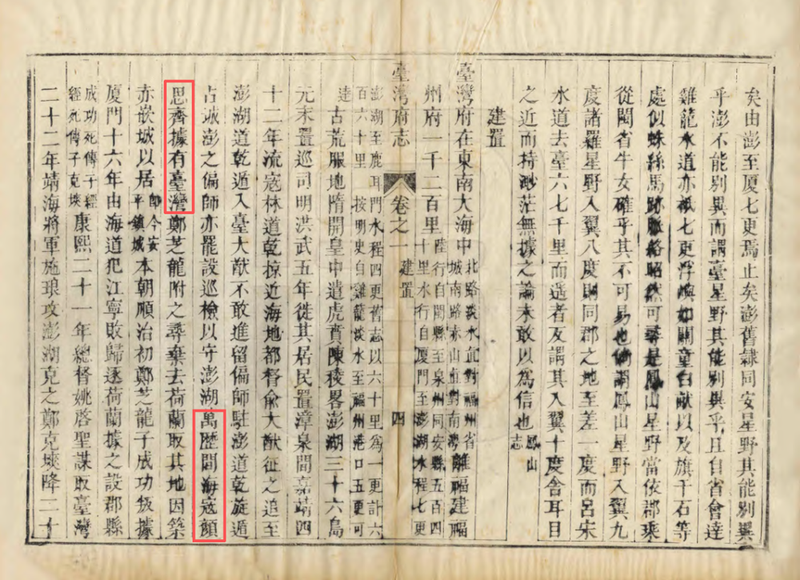 矣由澎至厦七更焉止矣澎舊隸同安星野其能别異
乎澎不能别異而謂臺星野其能别異乎且自省會達
雞龍水道亦祇七更浮嶼如關童白畎以及旗干石等
處似蛛絲馬跡脉絡昭然可尋是鳳山星野當依郡乘
從閩省牛女確乎其不可易也倘謂鳳山星野入翼九
度諸羅星野入翼八度則同郡之地至差一度而呂宋
水道去臺六七千里而遥者反謂其入翼十度舍耳目
之近而持渺茫無據之論未敢以為信也鳳山志
建置
臺灣府在東南大海中北路淡水北對福州省城南路赤山莊對南灣離福建福
州府一千二百里陸行自閩縣至泉州同安縣五百四十里水行自厦門至澎湖水程七更
臺灣府志 卷之一 建置 四
澎湖至鹿耳門水程四更舊志以六十里爲一更計六百六十里 按明史自雞籠淡水至福州港口五更可達
古荒服地隋開皇中遣虎賁陳稜畧澎湖三十六島
元末置巡司明洪武五年徙其居民置漳泉間嘉靖四
十二年流寇林道乾掠近海地都督俞大猷征之追至
澎湖道乾遁入臺大猷不敢進留偏師駐澎道乾旋遁
占城澎之偏師亦罷設巡檢以守澎湖萬歷間海寇顏
思齊據有臺灣鄭芝龍附之尋棄去荷蘭取其地因築
赤嵌城以居即今安平鎮城本朝順治初鄭芝龍子成功叛據
厦門十六年由海道犯江寧敗歸逐荷蘭據之設郡縣
成功死傳子經經死傳子克塽康熙二十一年總督姚啓聖謀取臺灣
二十二年靖海將軍施琅攻澎湖克之鄭克塽降二十